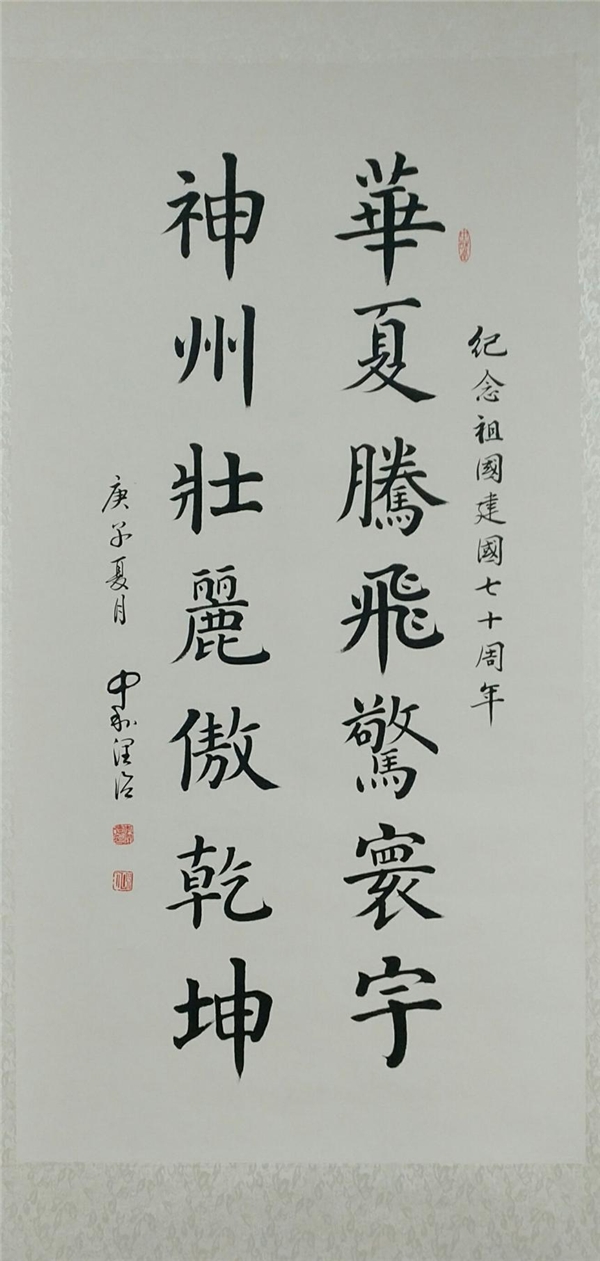 紀念祖國建國七十周年
華夏騰飛驚寰宇
神州壯麗傲乾坤
庚子夏月